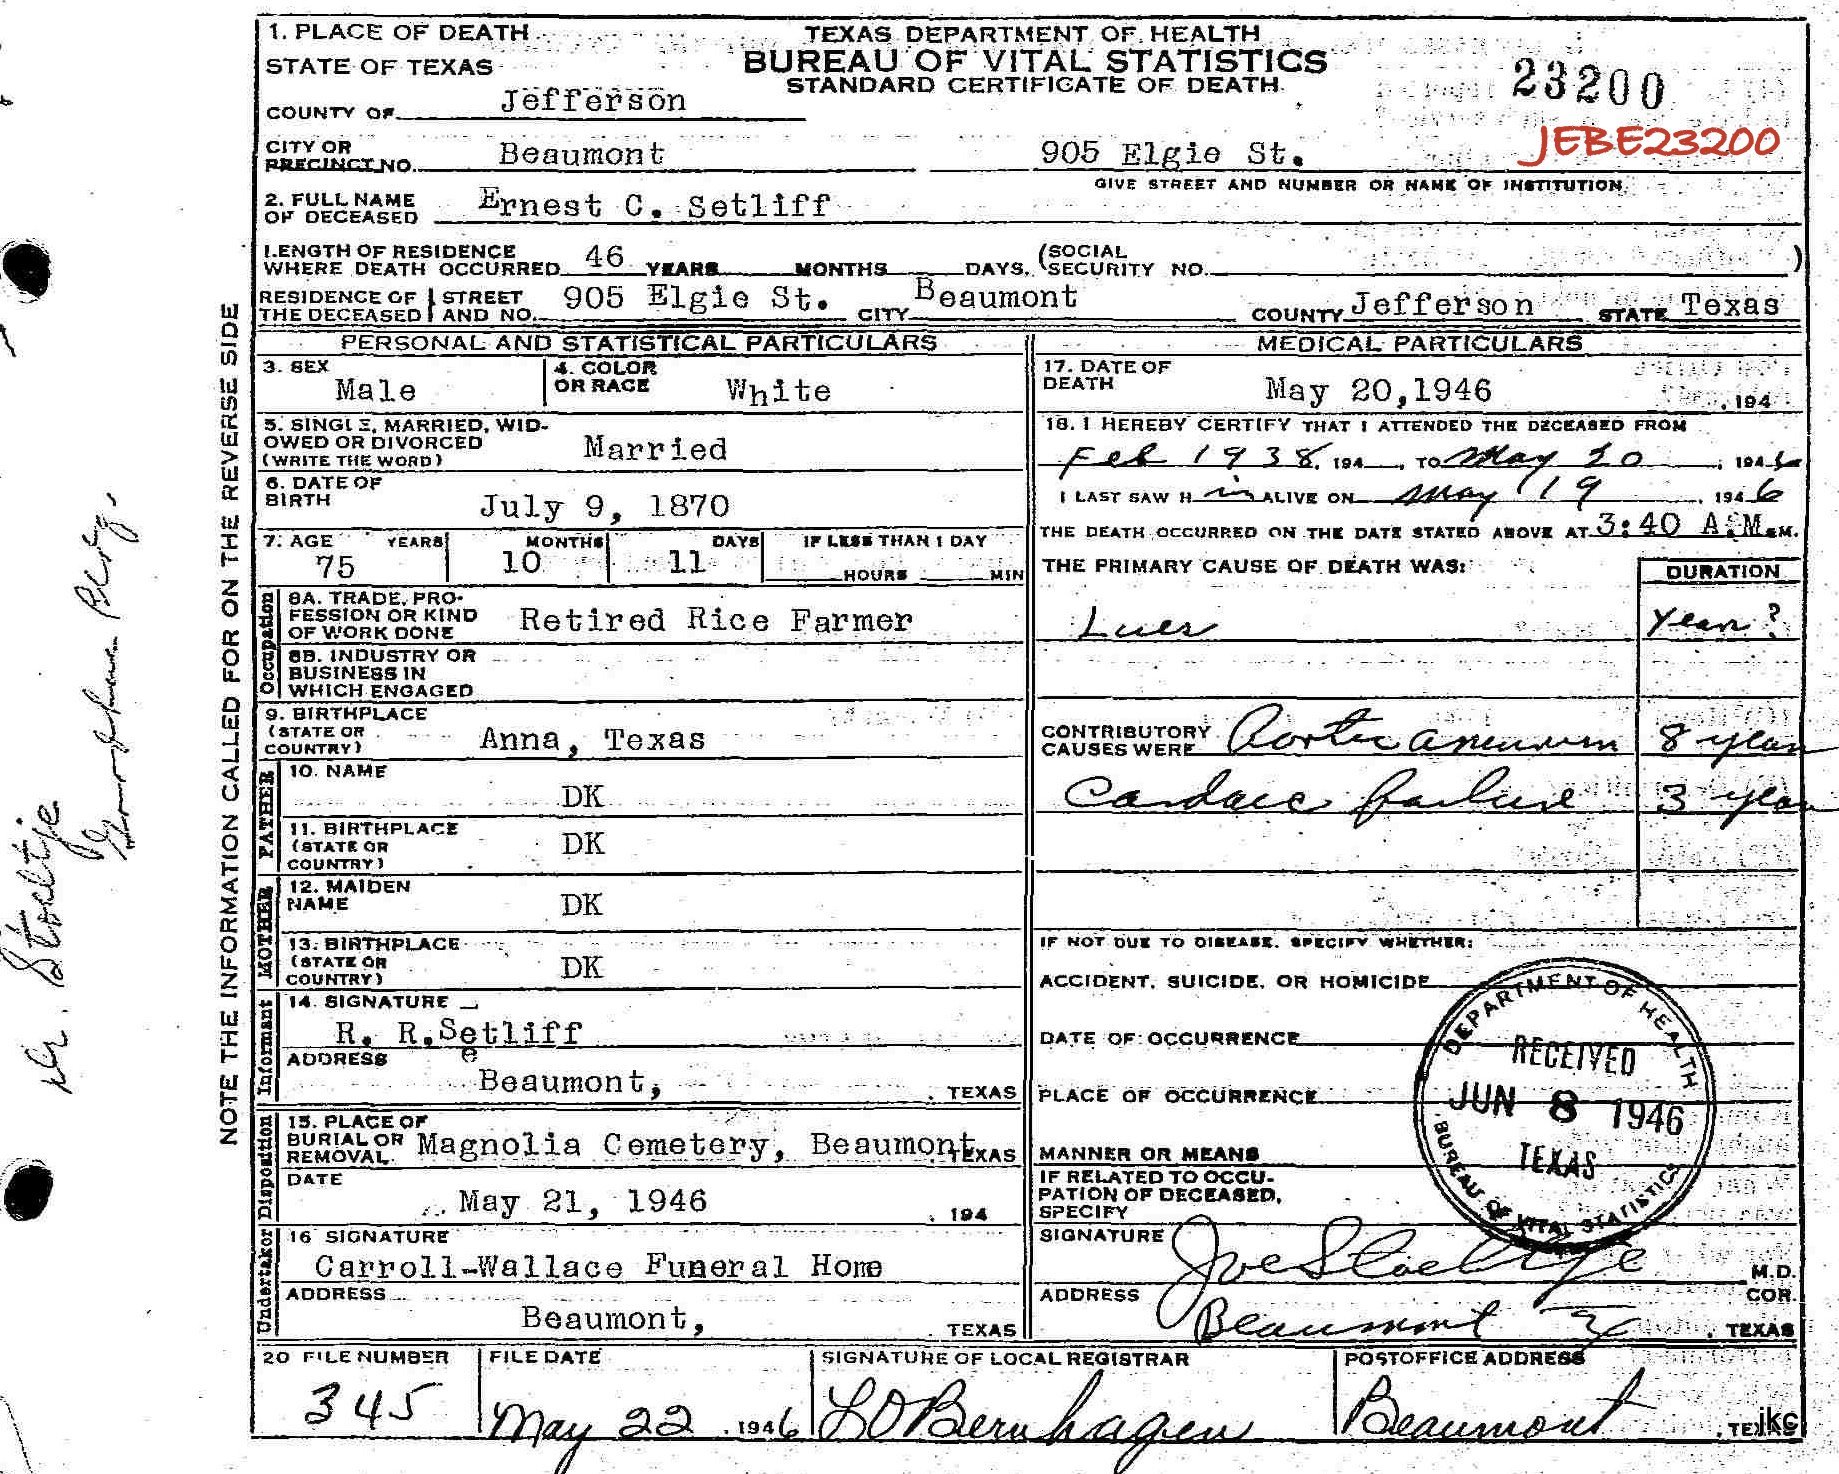 1. PLACE OF DEATH
STATE OF TEXAS
COUNTY OF Jefferson
TEXAS DEPARTMENT OF HEALTH
BUREAU OF VITAL STATISTICS
STANDARD CERTIFICATE OF DEATH
23200
JEBE23200
CITY OR
PRECINCT NO. Beaumont 905 Elgie St.
GIVE STREET AND NUMBER OR NAME OF INSTITUTION
2. FULL NAME
OF DECEASED Ernest C. Setliff
LENGTH OF RESIDENCE
WHERE DEATH OCCURRED 46 YEARS MONTHS DAYS. (SOCIAL
SECURITY NO. )
RESIDENCE OF THE DECEASED STREET AND NO. 905 Elgie St. CITY Beaumont COUNTY Jefferson STATE Texas
PERSONAL AND STATISTICAL PARTICULARS
3. SEX
Male
4. COLOR
OR RACE White
5. SINGLE, MARRIED, WID-
OWED OR DIVORCED
(WRITE THE WORD) Married
6. DATE OF
BIRTH July 9, 1870
7. AGE YEARS MONTHS DAYS IF LESS THAN 1 DAY
75 10 11 HOURS MIN
Occupation
8A. TRADE, PRO-
FESSION OR KIND
OF WORK DONE Retired Rice Farmer
8B. INDUSTRY OR
BUSINESS IN
WHICH ENGAGED
9. BIRTHPLACE
(STATE OR
COUNTRY) Anna, Texas
FATHER
10. NAME
DK
11. BIRTHPLACE
(STATE OR
COUNTRY) DK
MOTHER
12. MAIDEN
NAME DK
13. BIRTHPLACE
(STATE OR
COUNTRY) DK
Informant
14. SIGNATURE
R. R. Setliff
e
ADDRESS
Beaumont, TEXAS
Disposition
15. PLACE OF
BURIAL OR
REMOVAL Magnolia Cemetery, Beaumont TEXAS
DATE
May 21, 1946 , 194
Undertaker
16 SIGNATURE
Carroll-Wallace Funeral Home
ADDRESS
Beaumont, TEXAS
MEDICAL PARTICULARS
17. DATE OF
DEATH May 20,1946 , 194
18. I HEREBY CERTIFY THAT I ATTENDED THE DECEASED FROM
Feb 1938, 194 , TO May 20 , 1946
I LAST SAW H im ALIVE ON May 19 , 1946
THE DEATH OCCURRED ON THE DATE STATED ABOVE AT 3:40 A.M. M.
THE PRIMARY CAUSE OF DEATH WAS: DURATION
Lues Years?
CONTRIBUTORY
CAUSES WERE Aortic aneurism 8 years
Cardiac failure 3 years
IF NOT DUE TO DISEASE, SPECIFY WHETHER:
ACCIDENT, SUICIDE, OR HOMICIDE
DATE OF OCCURRENCE
PLACE OF OCCURRENCE
MANNER OR MEANS
IF RELATED TO OCCU-
PATION OF DECEASED,
SPECIFY
DEPARTMENT OF HEALTH
RECEIVED
JUN 8 1946
TEXAS
BUREAU OF VITAL STATISTICS
SIGNATURE Joe Stoeltje M.D.
COR.
ADDRESS Beaumont Tx , TEXAS
20 FILE NUMBER
345
FILE DATE
May 22 , 1946
SIGNATURE OF LOCAL REGISTRAR
L O Bernhagen
POSTOFFICE ADDRESS
Beaumont , TEXAS
jkc
NOTE THE INFORMATION CALLED FOR ON THE REVERSE SIDE
Dr. Stoeltje
Bldg.